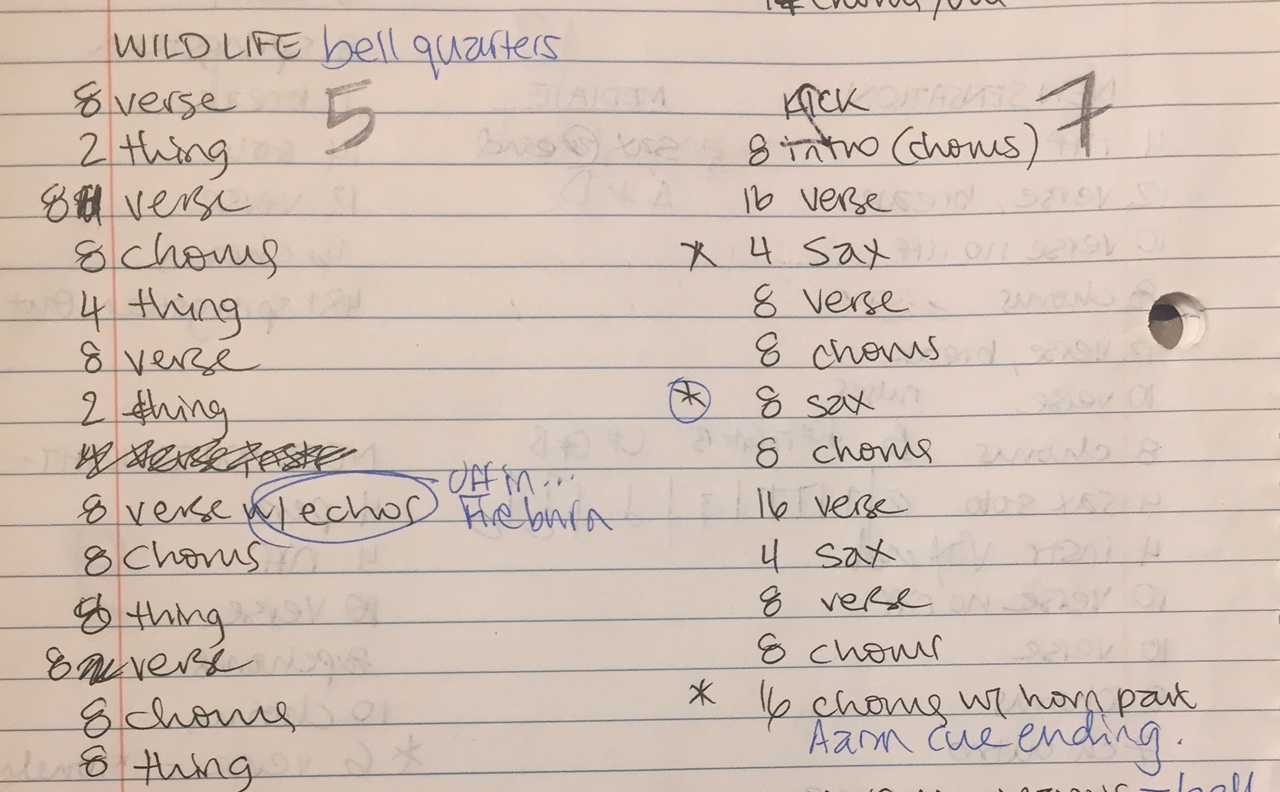 WILD LIFE bell quarters
5
8 verse
2 thing
8 verse
8 chorus
4 thing
8 verse
2 thing
8 verse w/ echos off in...
8 chorus
8 thing
8 verse
8 chorus
8 thing
KICK
7
8 intro (chorus)
16 verse
* 4 sax
8 verse
8 chorus
* 8 sax
8 chorus
16 verse
4 sax
8 verse
8 chorus
* 16 chorus w/ horn part
cue ending.